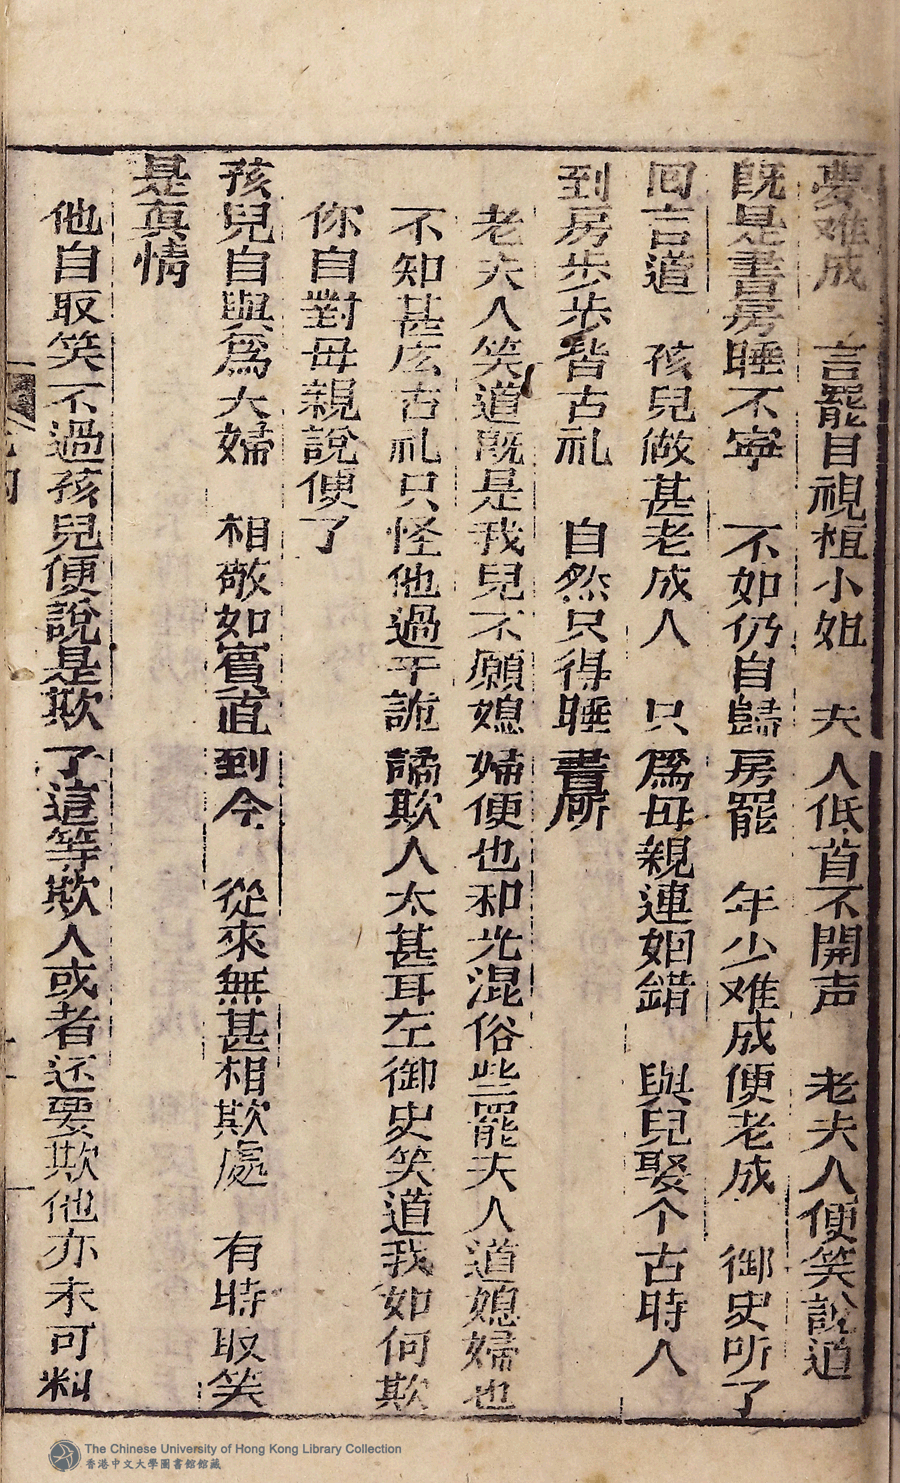 夢难成　言罷目視桓小姐　夫人低首不開声　老夫人便笑說道
既是書房睡不寧　不如仍自歸房罷　年少难成便老成　御史听了
回言道　孩兒做甚老成人　只爲母親連姻錯　與兒娶个古時人
到房步步皆古礼　自然只得睡書所
老夫人笑道既是我兒不願媳婦便也和光混俗些罷夫人道媳婦也
不知甚庅古礼只怪他過于詭譎欺人太甚耳左御史笑道我如何欺
你自對母親說便了
孩兒自與爲夫婦　相敬如賓直到今　從來無甚相欺處　有時取笑
是真情
他自取笑不過孩兒便說是欺了這等欺人或者还要欺他亦未可料
The Chinese University of Hong Kong Library Collection
香港中文大學圖書館館藏